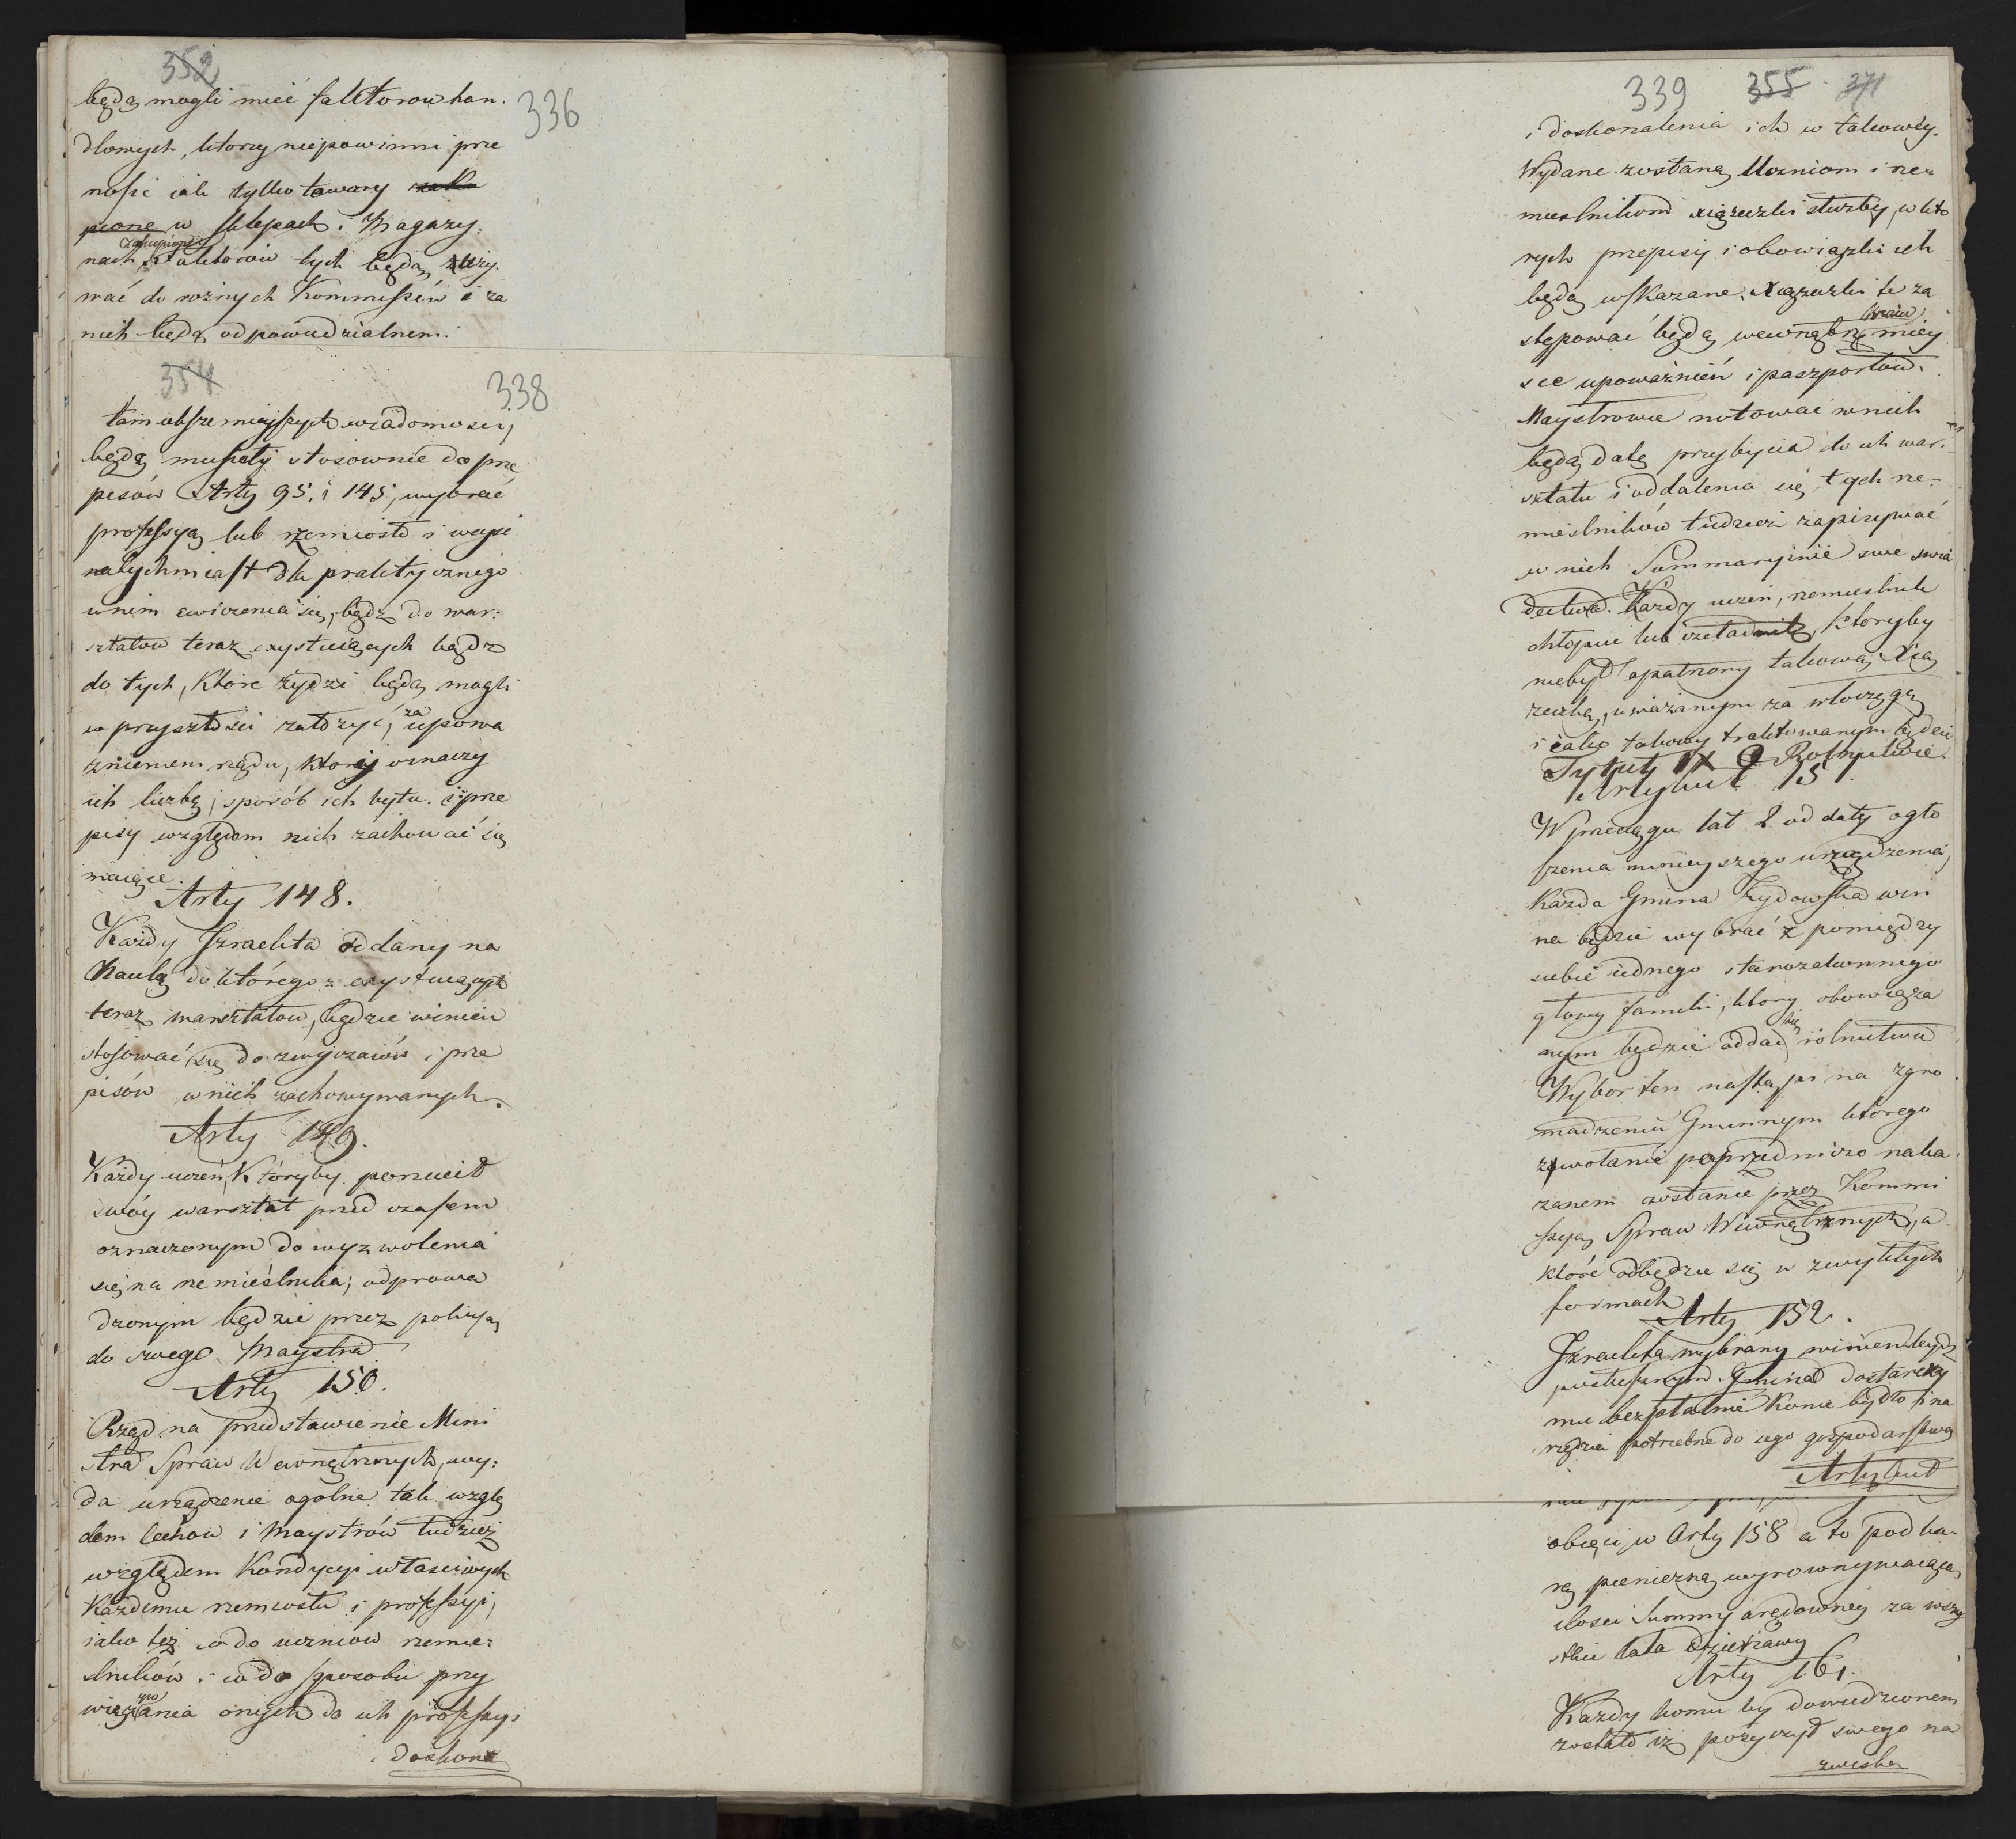 352
336
będą mogli mieć faktorow han.
dlowych, ktorzy niepowinni prze
nosić iak tylko towary zaku
pione w sklepach i Magazy:
zakupione
nach, Faktorów tych będą użyj.
wać do rożnych Kommissów i za
nich będą odpowiedzialnemi.
354
338
tam obszerniejszych wiadomosci,
będą musieli stosownie do prze
pisów Arty 95. i 145, wybrać
professyą lub rzemiosło i weyść
natychmiast dla praktycznego
w nim cwiczenia się, bądź do war:
sztatow teraz exystuiących bądz
do tych, które żydzi będą mogli
w przyszłości założyć, za upowa
żnieniem rządu, który oznaczy
ich liczbę, sposób ich bytu i prze
pisy względem nich zachować się
maiące.
Arty 148.
Każdy Izraelita oddany na
Naukę do którego z exystuiących
teraz warsztatow, będzie winien
stosować się do zwyczaiów i prze
pisów w nich zachowywanych.
Arty 149.
Każdy uczeń, któryby porzucił
swóy warsztat przed czasem
oznaczonym do wyzwolenia
się na rzemieślnika, odprowa
dzonym będzie przez policyą
do swego Maystra
Arty 150.
Rząd na przedstawienie Mini
stra Spraw Wewnętrznych, wy:
da urządzenie ogolne tak wzglę
dem Cechow i Maystrów tudzież
względem Kondycyi właściwych
Każdemu rzemiosłu i professyi,
iako też co do uczniów rzemie:
slników i co do sposobu przy
wiązania onych do ich professyi
i doskona
339 355 371
i doskonalenia ich w takowey.
Wydane zostaną Uczniom i rze:
mieslnikom xiążeczki służby, w kto
rych przepisy i obowiązki ich
będą wskazane. Xiążeczki te za
kraiu
stępować będą wewnątrz miey
sce upoważnień i paszportów.
Maystrowie notować w nich
będą datę przybycia do ich war:
sztatu i oddalenia się tych rze:
mieslników tudzież zapisywać
w nich Summaryinie swe swia
dectwa. Każdy uczeń, rzemieslnik
chłopiec lub czeladnik, ktoryby
niebył opatrzony takową Xią
żeczką, uważanym za włoczęgę
i iako takowy traktowanym będzie
Tytuł IX O Rolnictwie
Artykuł 15
W przeciągu lat 2 od daty ogło
szenia ninieyszego urządzenia,
każda Gmina Żydowska win
na będzie wybrać z pomiędzy
siebie iednego starozakonnego
głowę familii, ktory obowiąza
nym będzie oddać się rolnictwu
Wybor ten nastąpi na zgro
madzeniu Gminnym którego
zwołanie poprzedniczo naka
zanem zostanie przez Kommi
ssyą Spraw Wewnętrznych, a
które odbędzie się w zwykłych
formach
Arty 152.
Izraelita wybrany winien będzie
posłusznym. Gmina dostarczy
mu bezpłatnie Konie bydło i na
rzędzia potrzebne do iego gospodarstwa
Artykuł
obięci w Arty 158 a to pod ka:
rą pieniężną wyrownywaiącą
ilosci Summy arędowney za wszy
stkie lata dzierżawy
Arty 161.
Każdy komu by dowiedzionem
zostało iż pożyczył swego na
zwiska